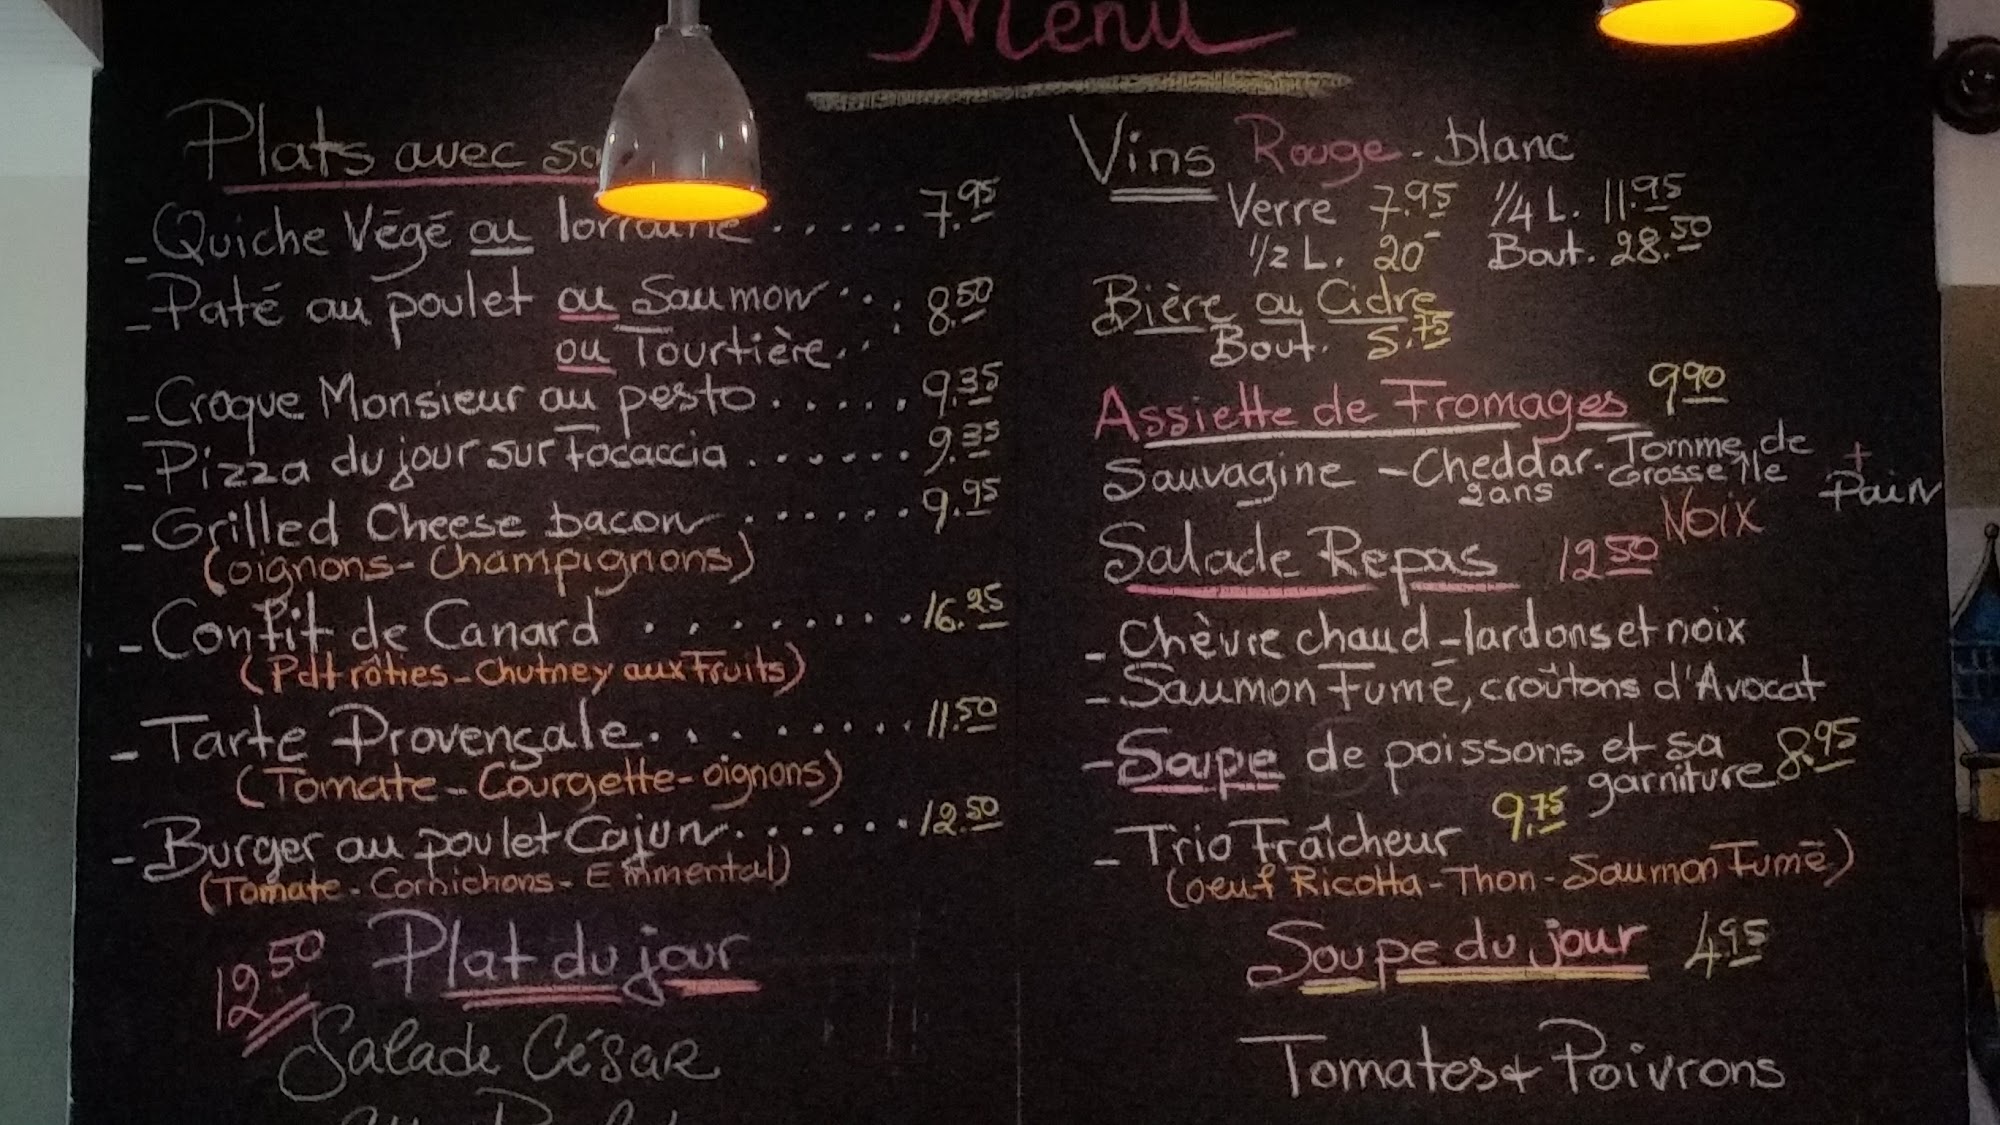 Menu
Plats avec
- Quiche Végé ou lorraine ...... 7.95
- Paté au poulet ou Saumon ... 8.50
ou Tourtière..
- Croque Monsieur au pesto ..... 9.35
- Pizza du jour sur Focaccia ....... 9.35
- Grilled Cheese bacon ...... 9.95
(oignons - Champignons)
- Confit de Canard ........ 16.25
(Pdt rôties - Chutney aux Fruits)
- Tarte Provençale ........ 11.50
(Tomate - Courgette - oignons)
- Burger au poulet Cajun ...... 12.50
(Tomate - Cornichons - Emmental)
12.50 Plat du jour
Salade César
Vins Rouge - blanc
Verre 7.95 1/4 L. 11.95
1/2 L. 20 Bout. 28.50
Bière ou Cidre
Bout. 5.75
Assiette de Fromages 9.90
Sauvagine - Cheddar 2ans - Tomme de Grosse Ile + Pain
Noix
Salade Repas 12.50
- Chèvre chaud - lardons et noix
- Saumon Fumé, croûtons d'Avocat
- Soupe de poissons et sa garniture 8.95
- Trio Fraîcheur 9.75
(oeuf Ricotta - Thon - Saumon Fumé)
Soupe du jour 4.95
Tomates + Poivrons